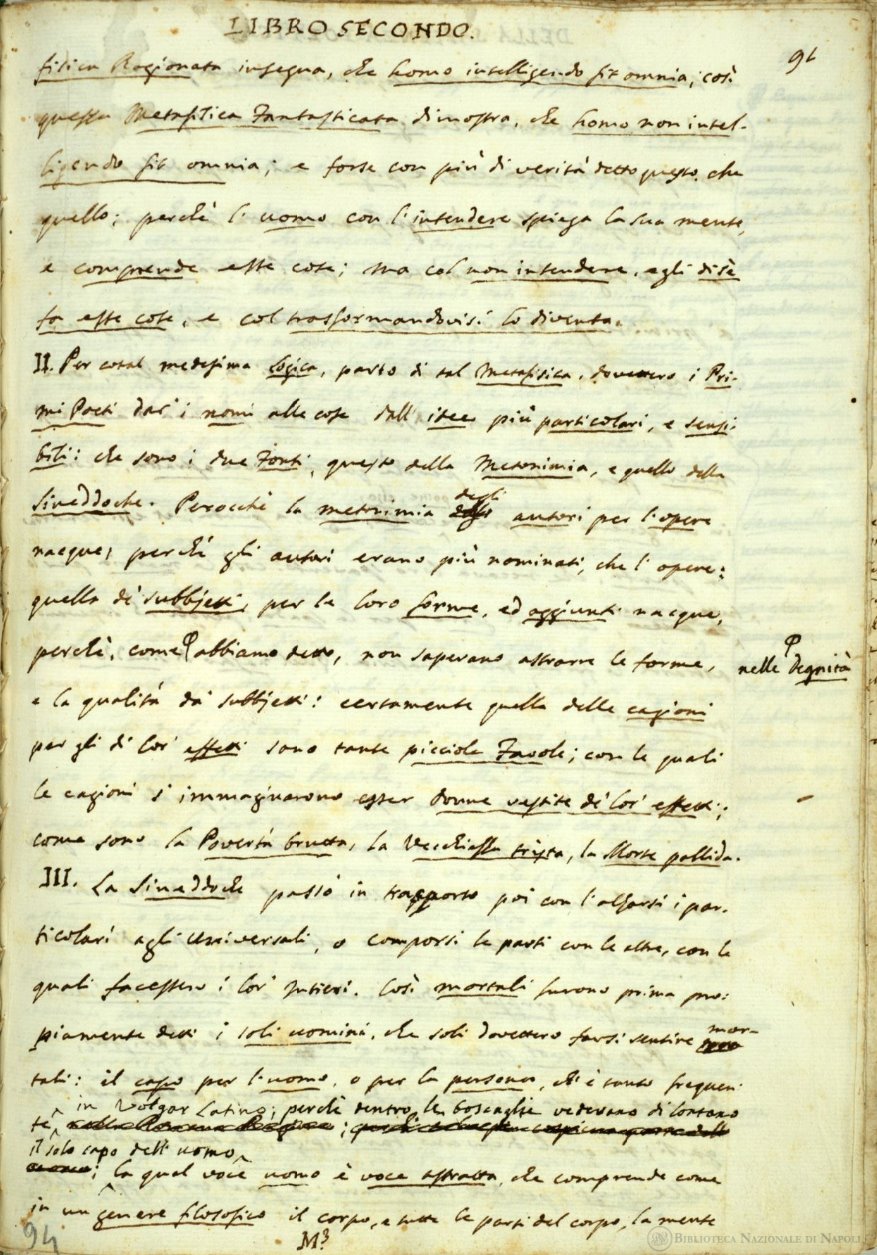 LIBRO SECONDO.
91
fisica Ragionata insegna, che homo intelligendo fit omnia; così
questa Metafisica Fantasticata dimostra, che homo non intel-
ligendo fit omnia; e forse con più di verità detto questo, che
quello; perchè l'uomo con l'intendere spiega la sua mente,
e comprende esse cose; ma col non intendere, egli di sè
fa esse cose, e col trasformandovisi lo diventa.
II. Per cotal medesima Logica, parto di tal Metafisica, dovettero i Pri-
mi Poeti dar' i nomi alle cose dall' idee più particolari, e sensi-
bili: che sono i due Fonti, questo della Metonimia, e quello della
Sineddoche. Perocchè la metonimia degli autori per l'opere
nacque, perchè gli autori erano più nominati, che l'opere:
quella de' subbjetti per le loro forme, ed aggiunti nacque,
perchè, come abbiamo detto, non sapevano astrarre le forme,
nelle Degnità
e la qualità da' subbjetti: certamente quella delle cagioni
per gli di lor' effetti sono tante picciole Favole; con le quali
le cagioni s' immaginarono esser donne vestite de' lor' effetti;
come sono la Povertà brutta, la Vecchiezza trista, la Morte pallida.
III. La Sineddoche passò in trapporto poi con l'alzarsi i par-
ticolari agli Universali, o comporsi le parti con le altre, con le
quali facessero i lor' Intieri. Così mortali furono prima pro-
piamente detti i soli uomini, che soli dovettero farsi sentire mor-
tali: il capo per l'uomo, o per la persona, ch'è tanto frequen-
te in Volgar Latino; perchè dentro le boscaglie vedevano di lontano
il solo capo dell' uomo
; la qual voce uomo è voce astratta, che comprende come
in un genere filosofico il corpo, e tutte le parti del corpo, la mente
94
M3
BIBLIOTECA NAZIONALE DI NAPOLI